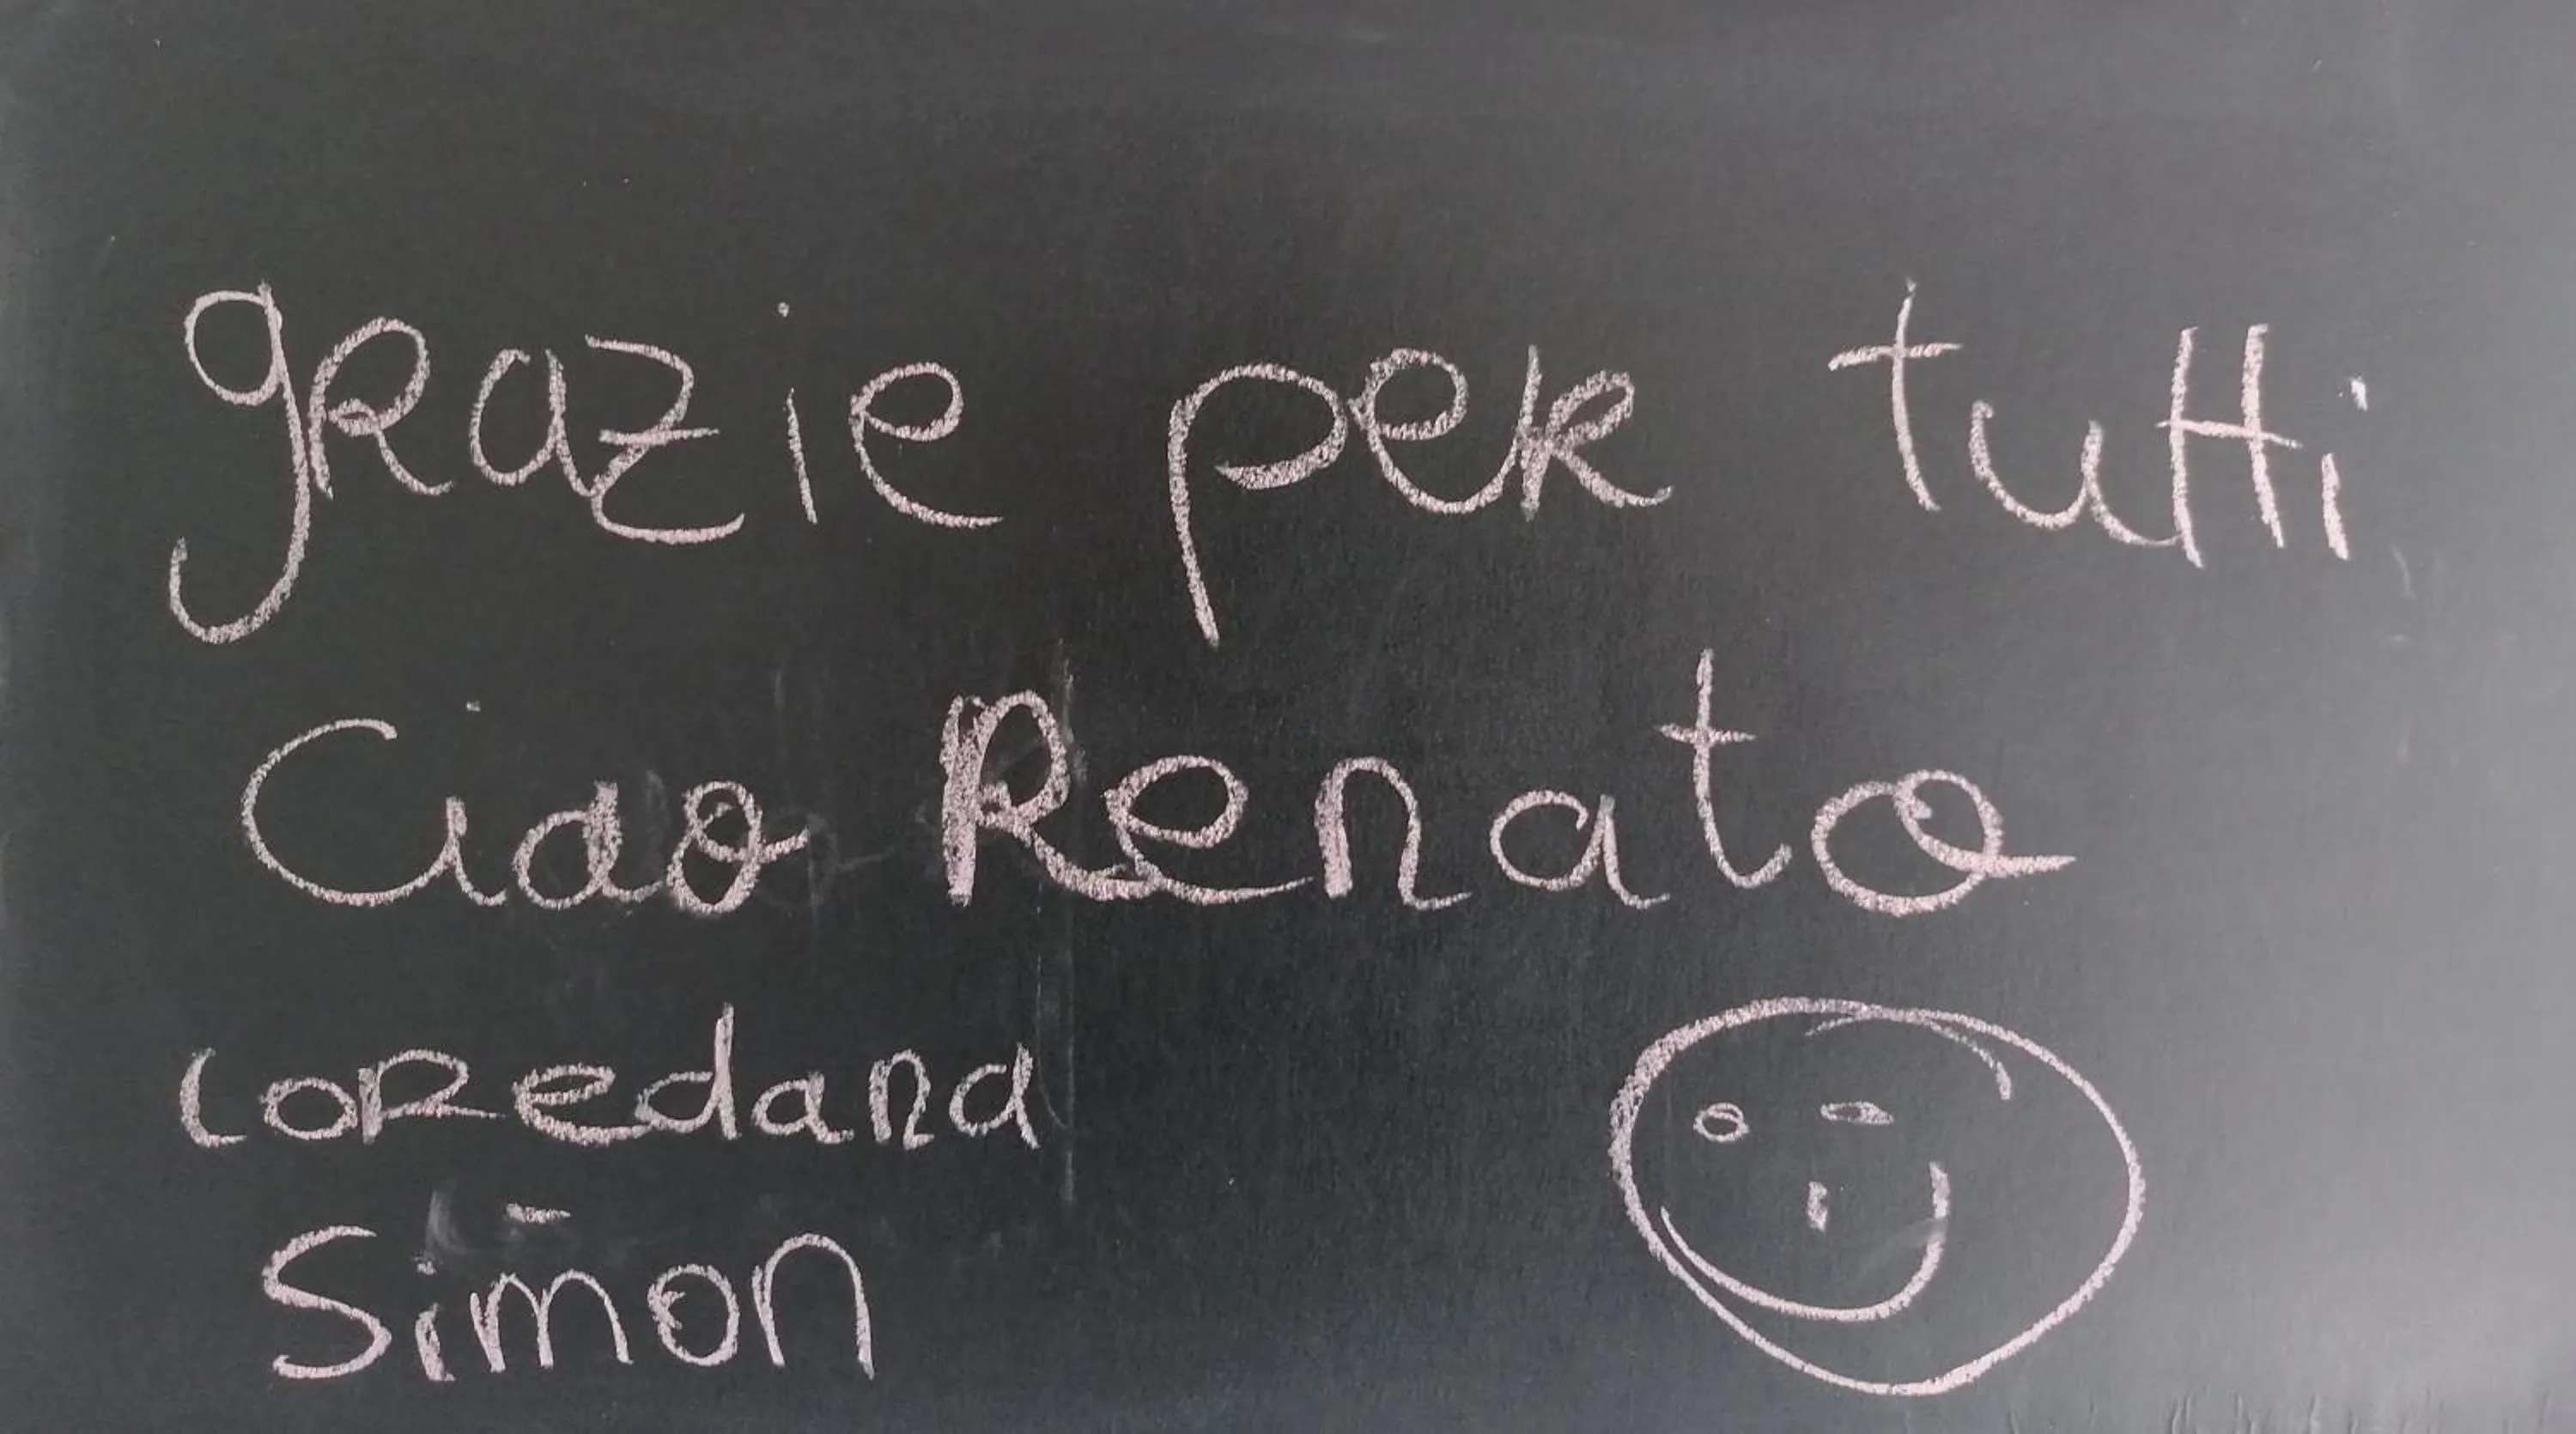 grazie per tutti
Ciao Renato
Loredana
Simon